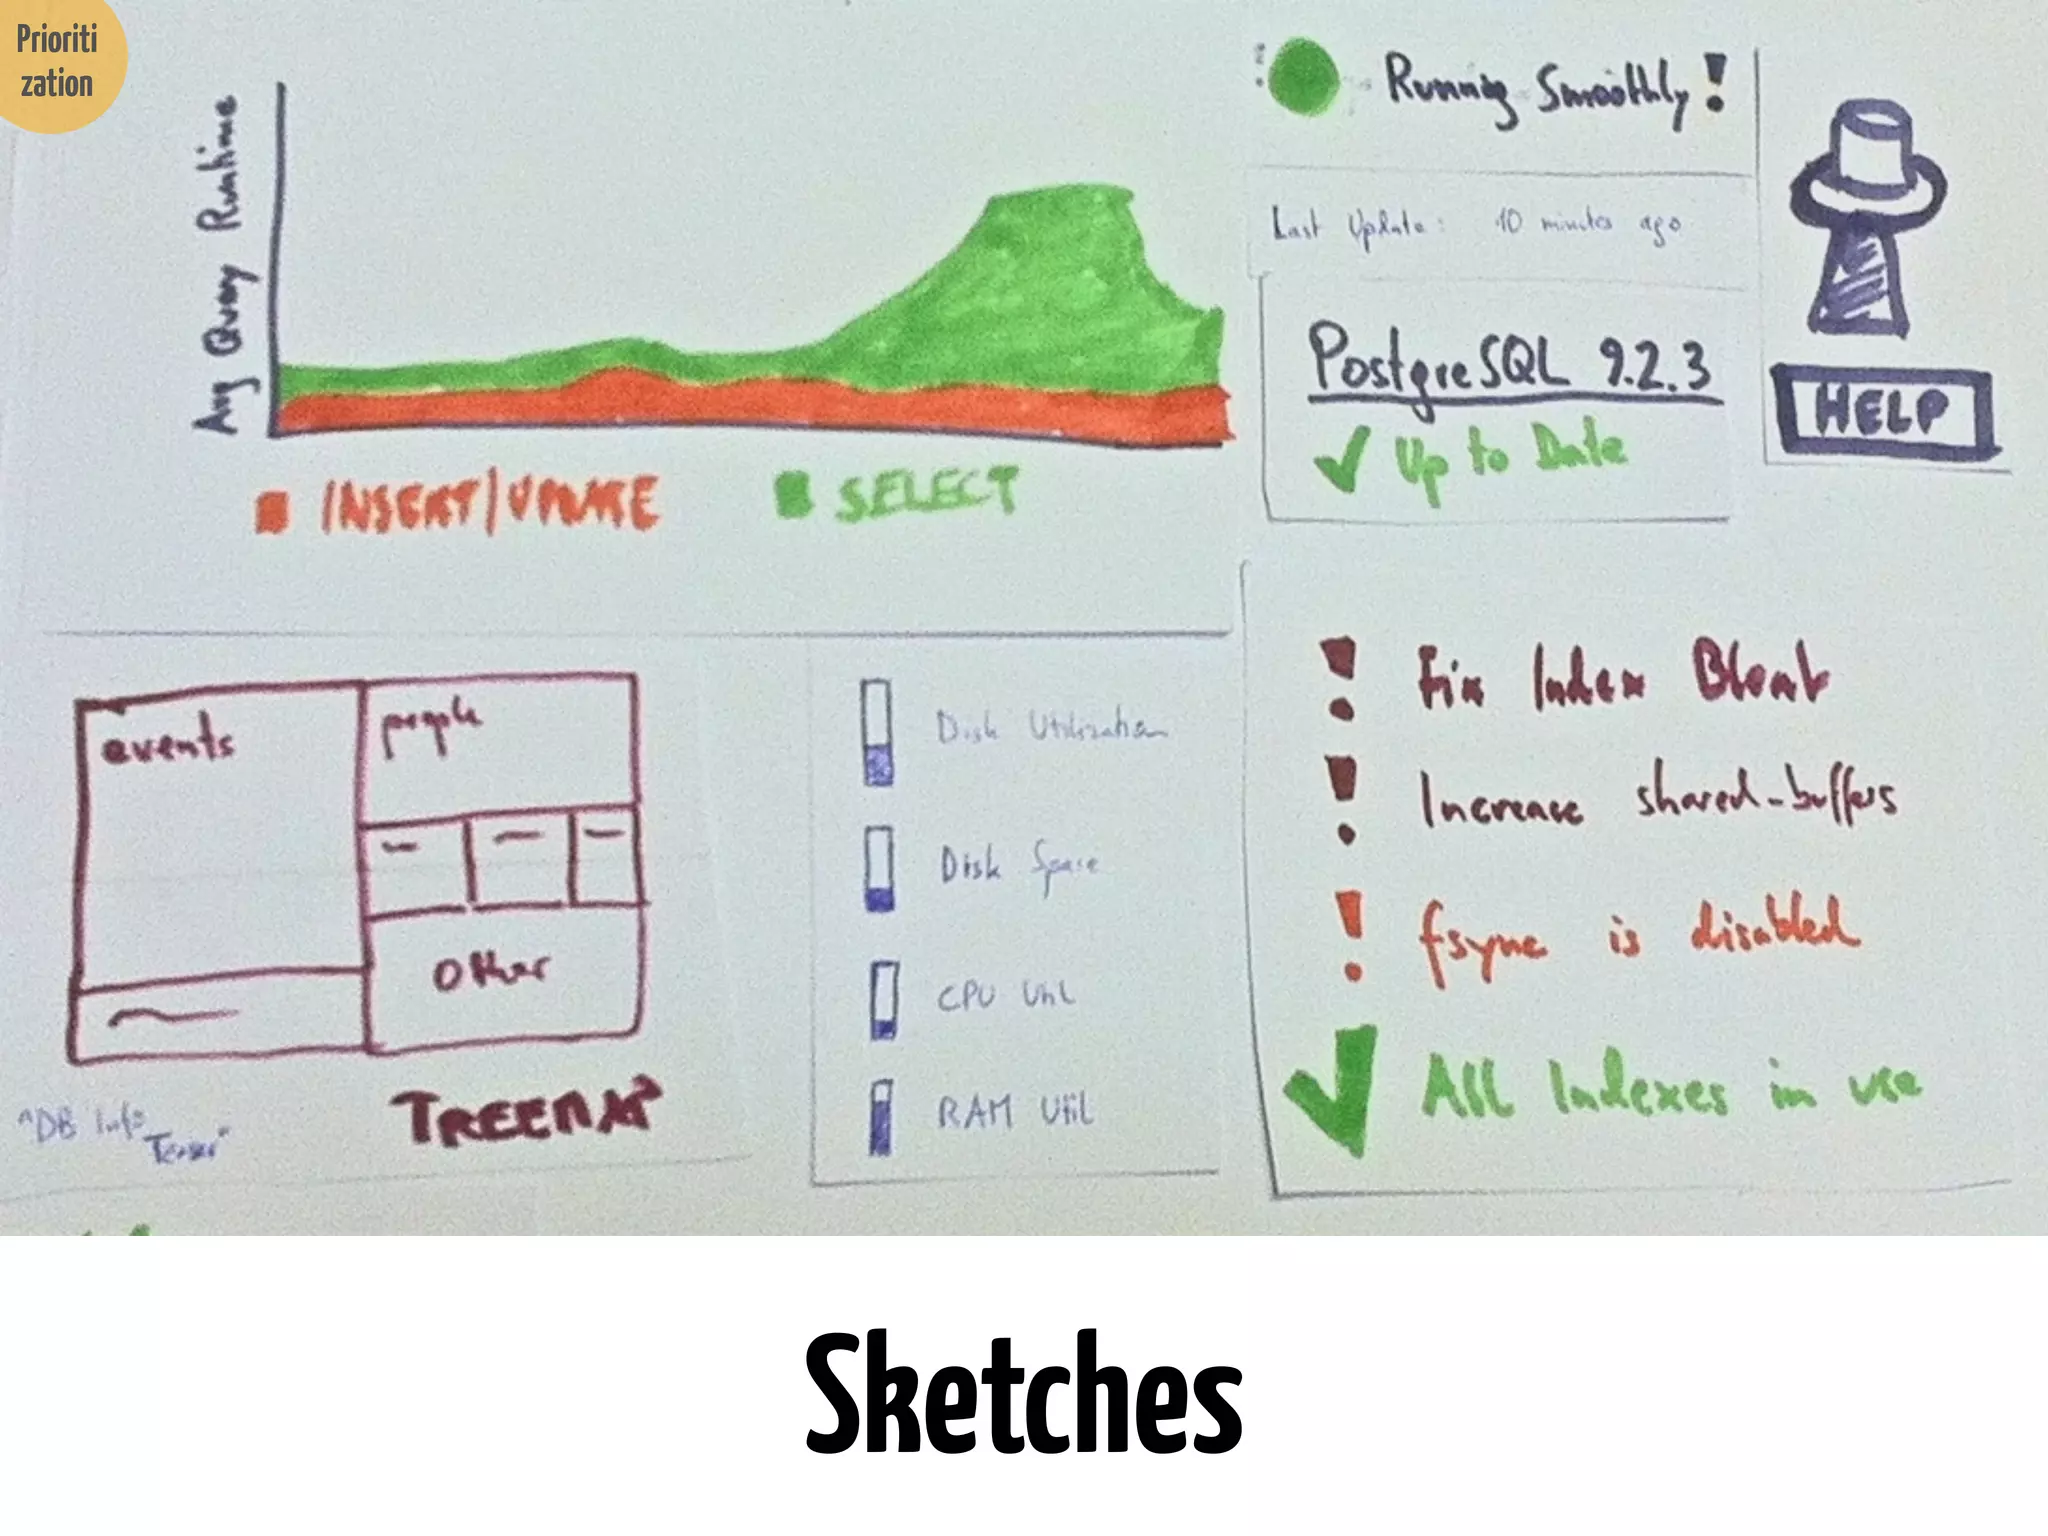 Prioriti
zation
Avg Query Runtime
INSERT/UPDATE
SELECT
Running Smoothly!
Last Update: 10 minutes ago
PostgreSQL 9.2.3
Up to Date
HELP
events
people
Other
TREEMAP
"DB Info
Disk Utilization
Disk Space
CPU Util
RAM Util
! Fix Index Bloat
! Increase shared-buffers
! fsync is disabled
✓ All Indexes in use
Sketches